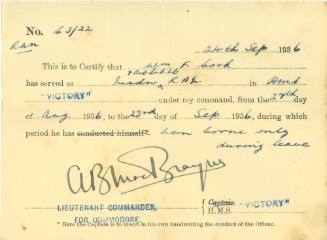 No. 63/22
24th Sep 1936
This is to Certify that Wm F. Cook
has served as R.A.F. in HMS
"VICTORY" under my command, from the 27th day
of Aug 1936, to the 23rd day of Sep 1936, during which
period he has conducted himself been borne only
during leave
LIEUTENANT COMMANDER,
FOR COMMODORE.
Captain
H.M.S. "VICTORY"
* Here the Captain is to insert in his own handwriting the conduct of the Officer.